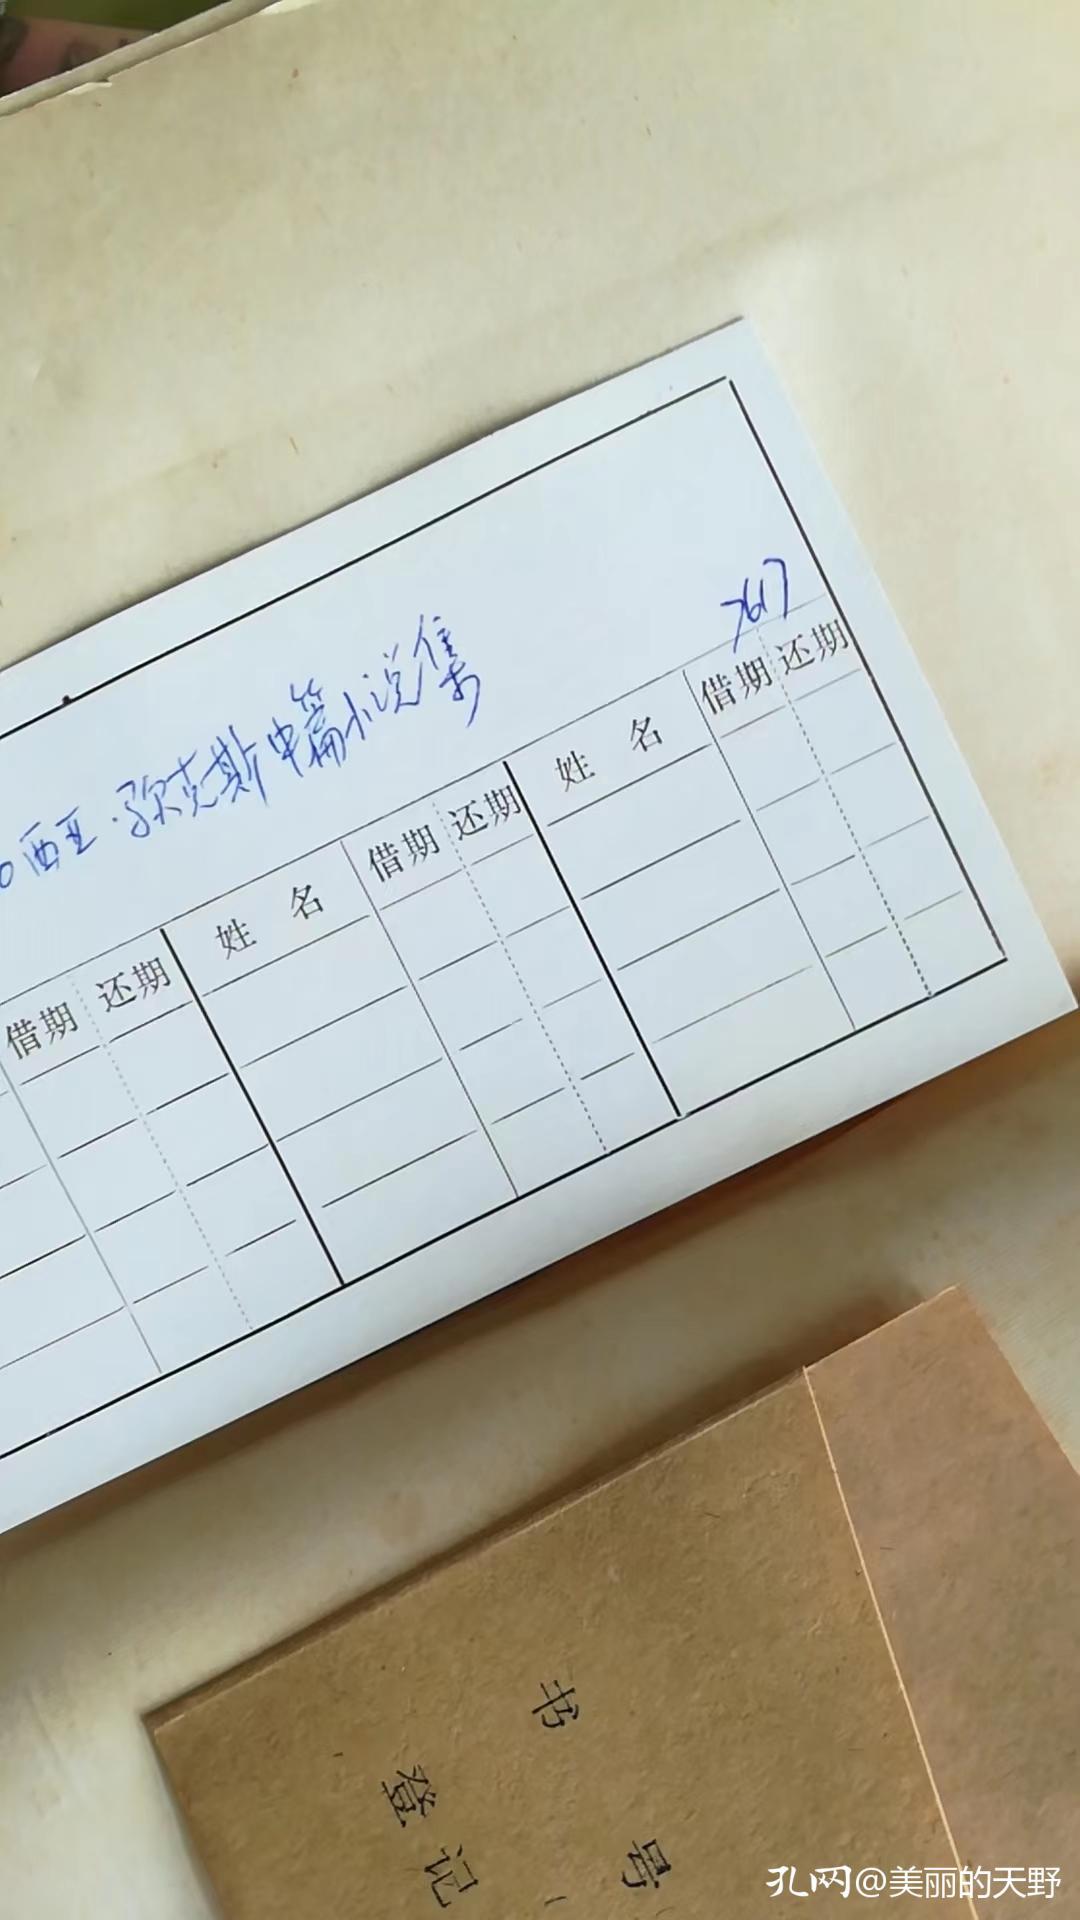 7617
西亚·弥克斯中篇小说集
借期 还期 姓名 借期 还期 姓名 借期 还期
书号
登记
孔网@美丽的天野